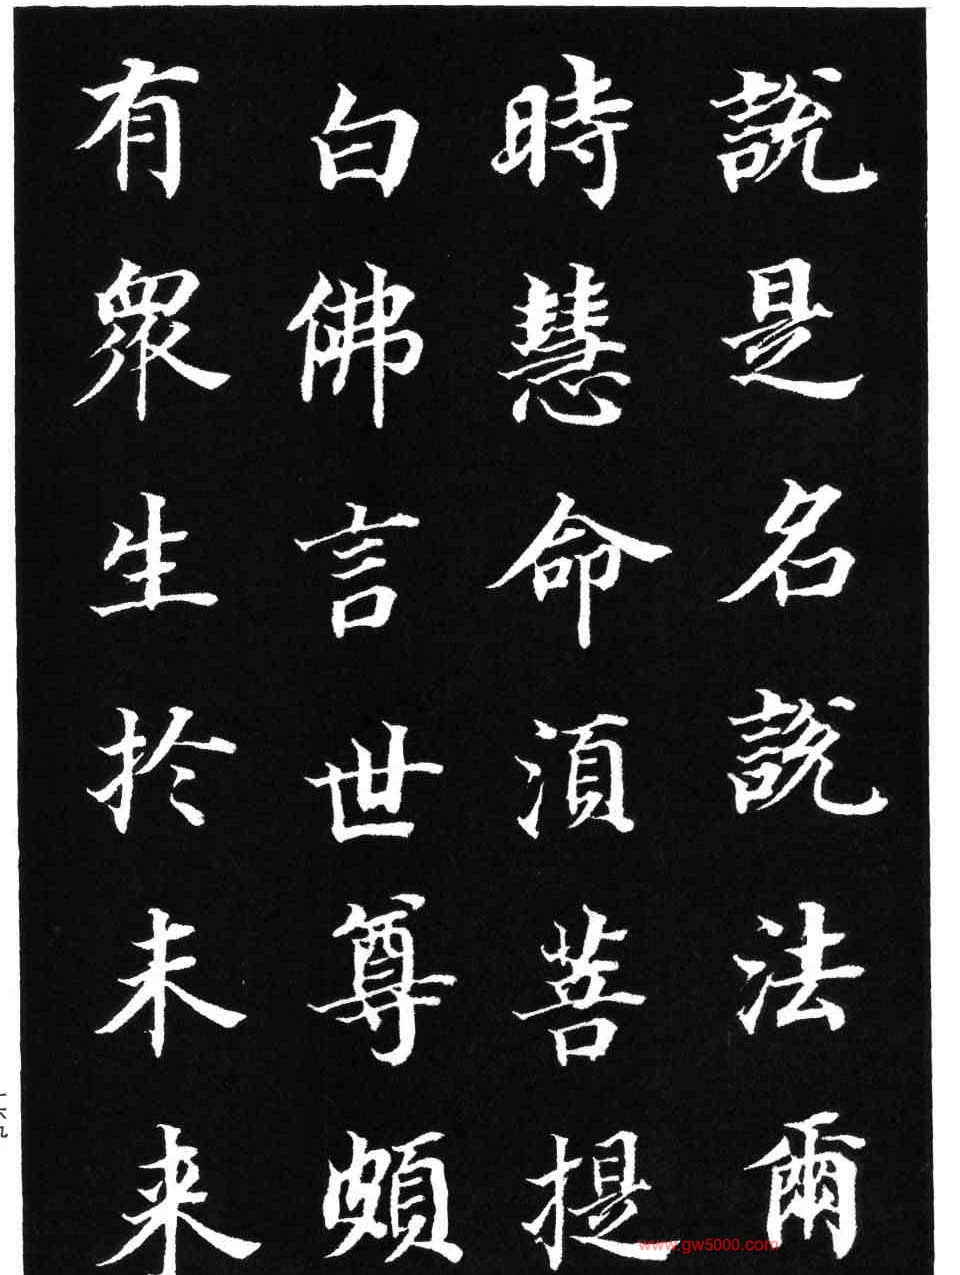 説是名説法爾
時慧命湏菩提
白佛言世尊頗
有衆生於未来
一六九
www.gw5000.com